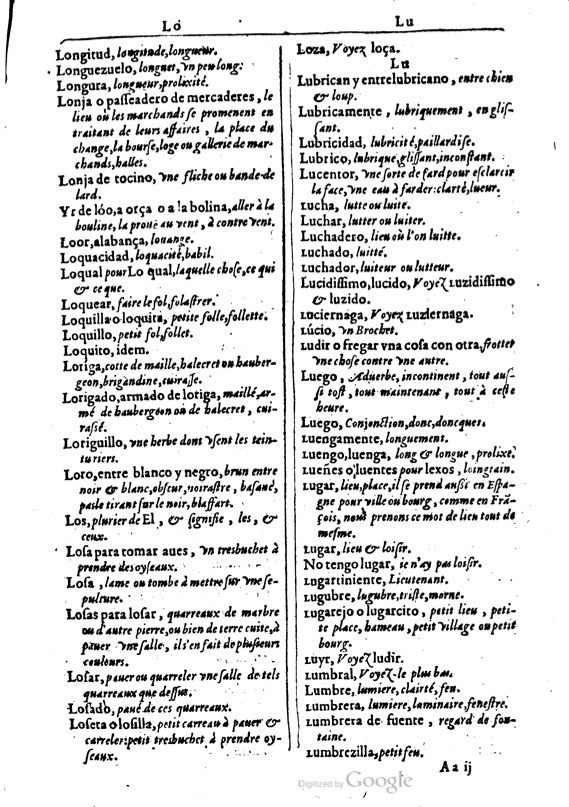 Lo
Longitud, longitude, longueur.
Longuezuelo, longuet, vn peu long.
Longura, longueur, prolixité.
Lonja o passeadero de mercaderes, le
lieu où les marchands se promenent en
traitant de leurs affaires, la place du
change, la bourse, loge ou gallerie de mar-
chands, halles.
Lonja de tocino, vne fliche ou bande de
lard.
Yr de lóo, a orça o a la bolina, aller à la
bouline, la prouë au vent, à contre vent.
Loor, alabança, louange.
Loquacidad, loquacité, babil.
Loqual pour Lo qual, laquelle chose, ce qui
& ce que.
Loquear, faire le fol, folastrer.
Loquilla o loquita, petite folle, follette.
Loquillo, petit fol, follet.
Loquito, idem.
Loriga, cotte de maille, halecret ou hauber-
geon, brigandine, cuirasse.
Lorigado, armado de loriga, maillé, ar-
mé de haubergeon ou de halecret, cui-
rassé.
Loriguillo, vne herbe dont vsent les tein-
turiers.
Loro, entre blanco y negro, brun entre
noir & blanc, obscur, noirastre, basané,
pasle tirant sur le noir, blaffart.
Los, plurier de El, & signifie, les, &
ceux.
Losa para tomar aues, vn tresbuchet à
prendre des oyseaux.
Losa, lame ou tombe à mettre sur vne se-
pulture.
Losas para losar, quarreaux de marbre
ou d'autre pierre, ou bien de terre cuite, à
pauer vne salle, ils s'en fait de plusieurs
couleurs.
Losar, pauer ou quarreler vne salle de tels
quarreaux que dessus.
Losado, paué de ces quarreaux.
Loseta o losilla, petit carreau à pauer &
carreler: petit tresbuchet à prendre oy-
seaux.
Lu
Loza, Voyez loça.
Lu
Lubrican y entrelubricano, entre chien
& loup.
Lubricamente, lubriquement, en glis-
sant.
Lubricidad, lubricité, paillardise.
Lubrico, lubrique, glissant, inconstant.
Lucentor, vne sorte de fard pour esclarcir
la face, vne eau à farder: clarté, lueur.
Lucha, lutte ou luite.
Luchar, lutter ou luiter.
Luchadero, lieu où l'on luitte.
Luchado, luitté.
Luchador, luiteur ou lutteur.
Lucidissimo, lucido, Voyez Luzidissimo
& luzido.
Luciernaga, Voyez Luziernaga.
Lúcio, vn Brochet.
Ludir o fregar vna cosa con otra, frotter
vne chose contre vne autre.
Luego, Aduerbe, incontinent, tout aus-
si tost, tout maintenant, tout à ceste
heure.
Luego, Conjonction, donc, doncques.
Luengamente, longuement.
Luengo, luenga, long & longue, prolixe.
Lueñes o luentes pour lexos, loingtain.
Lugar, lieu, place, il se prend aussi en Espa-
gne pour ville ou bourg, comme en Frã-
çois, nous prenons ce mot de lieu tout de
mesme.
Lugar, lieu & loisir.
No tengo lugar, ie n'ay pas loisir.
Lugartiniente, Lieutenant.
Lugubre, lugubre, triste, morne.
Lugarejo o lugarcito, petit lieu, peti-
te place, hameau, petit village ou petit
bourg.
Luyr, Voyez ludir.
Lumbral, Voyez-le plus bas.
Lumbre, lumiere, clairté, feu.
Lumbrera, lumiere, laminaire, fenestre.
Lumbrera de fuente, regard de fon-
taine.
Lumbrezilla, petit feu.
Aa ij
Digitized by Google